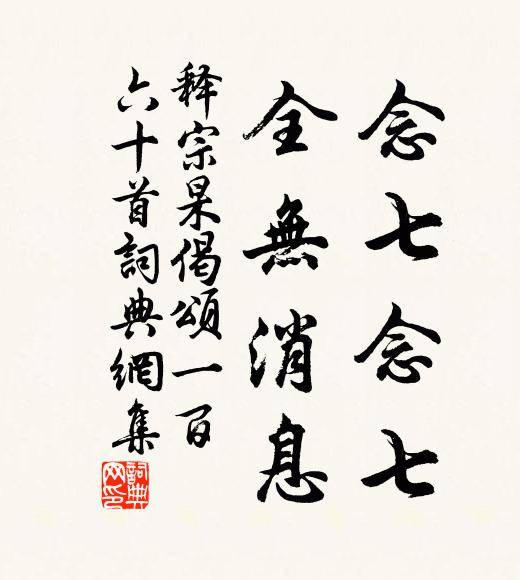 念七念七
全無消息
释宗杲偈頌一百
六十首詞典網集
詞典
网印